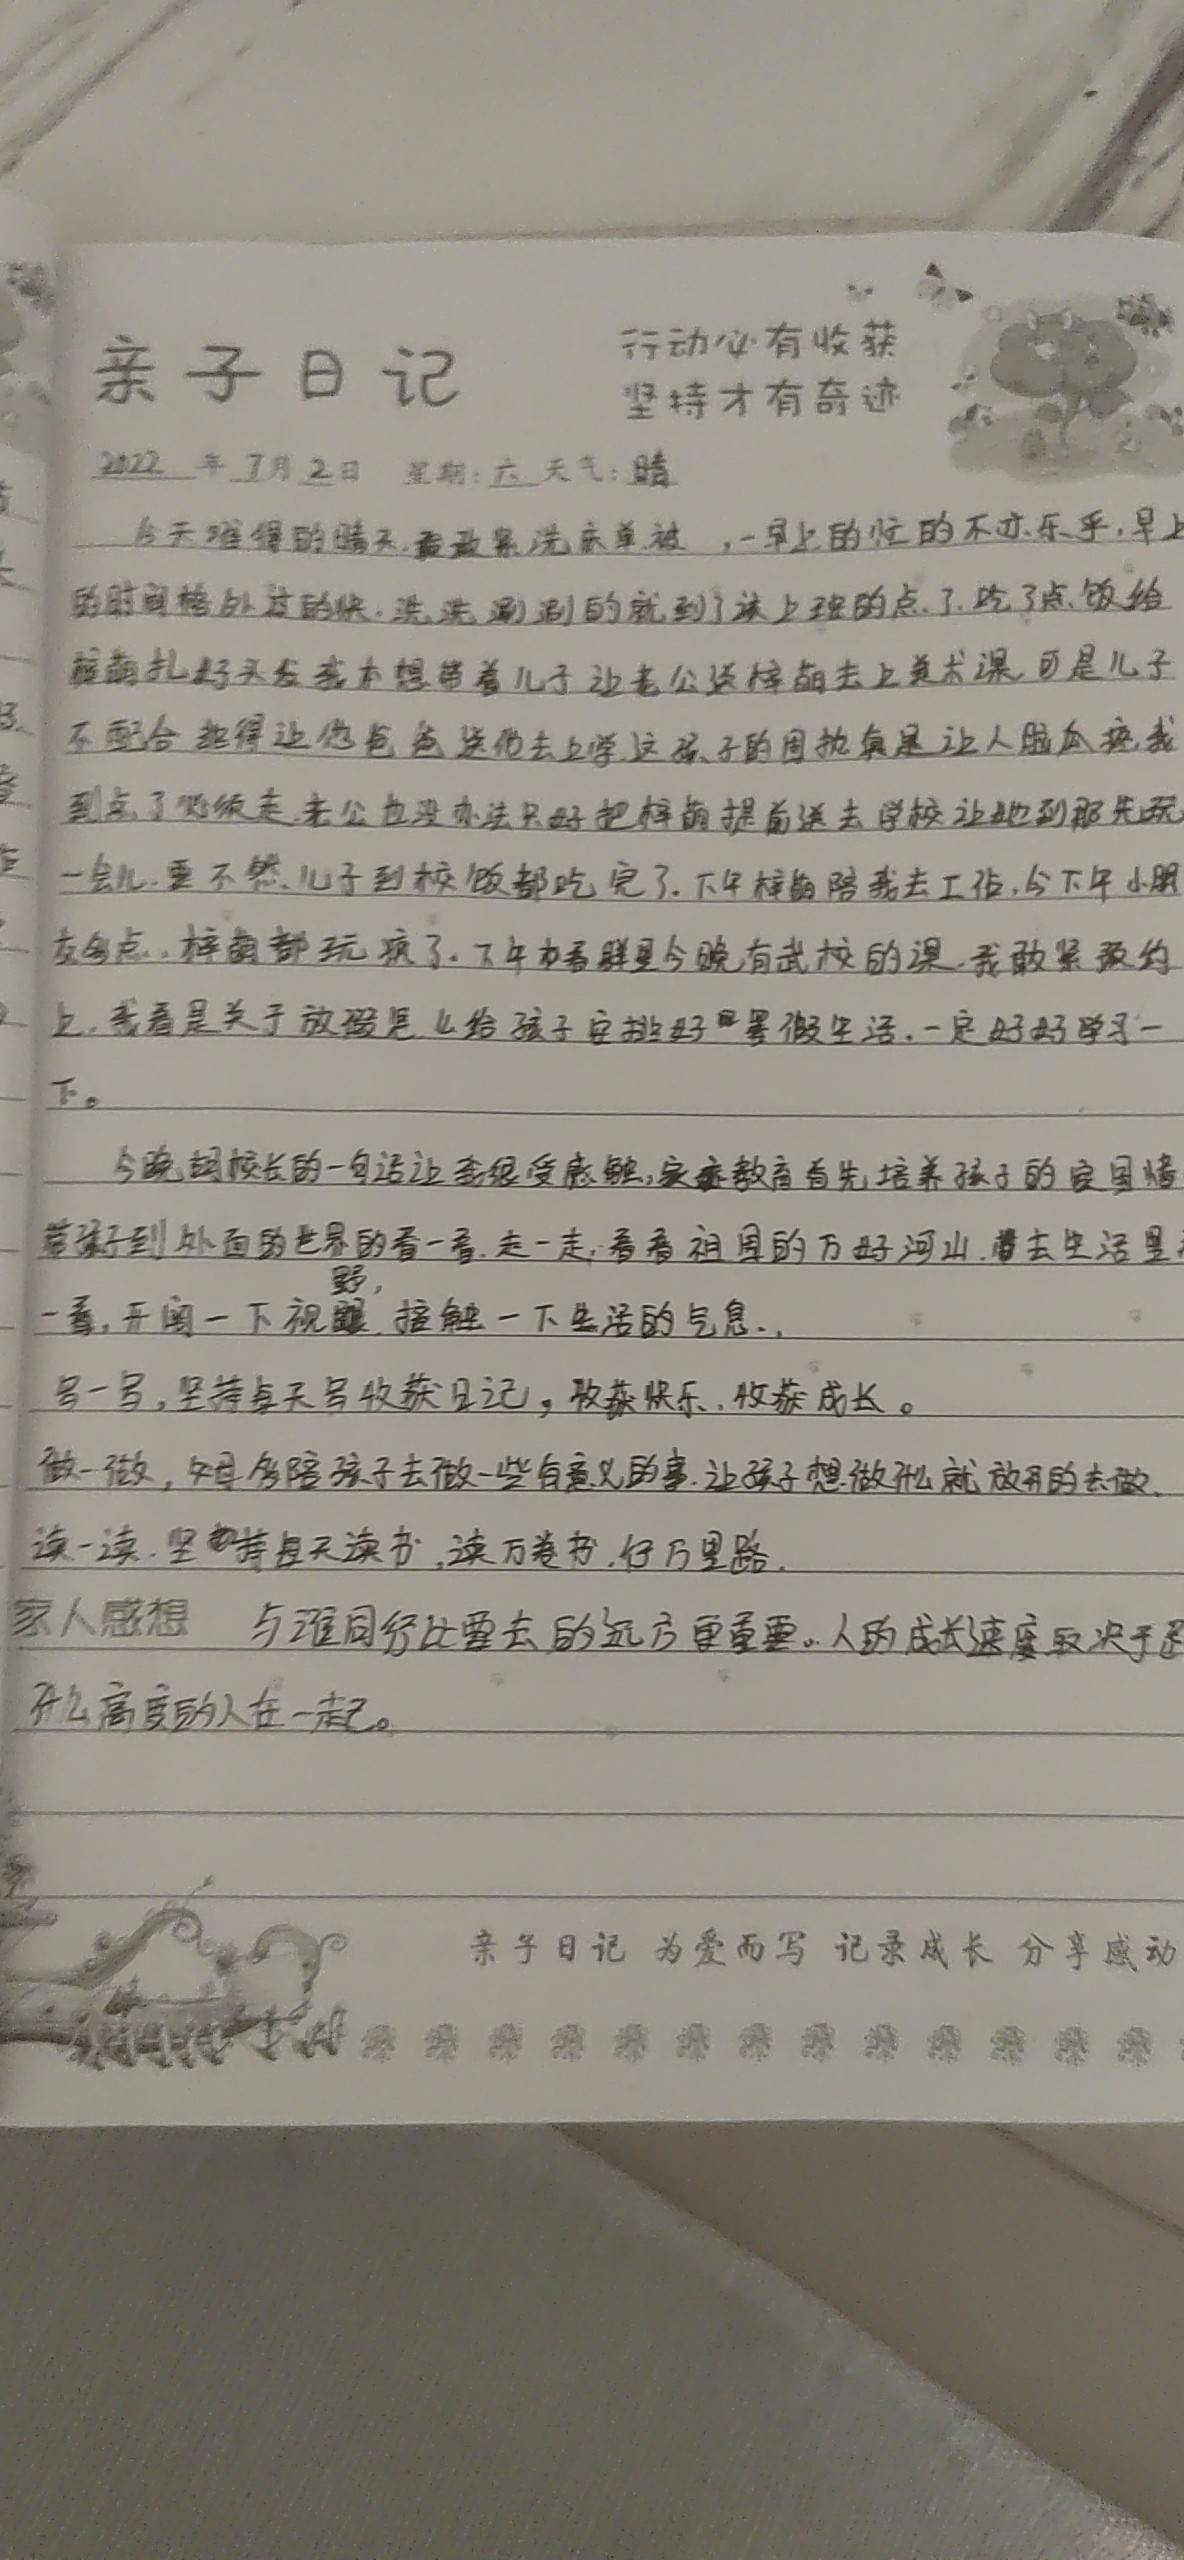 亲子日记
行动必有收获
坚持才有奇迹
2022年7月2日 星期:六 天气:晴
今天难得的晴天,我赶紧洗床单被,一早上的忙的不亦乐乎,早上
的时间格外过的快,洗洗涮涮的就到了该上班的点了,吃了点饭给
梓萌扎好头发我本想带着儿子让老公送梓萌去上美术课,可是儿子
不配合 让他爸爸送他去上学,这孩子的固执真是让人脑瓜疼,我
到点了必须走,老公也没办法只好把梓萌提前送去学校让她到那先玩
一会儿,要不然儿子到校饭都吃完了.下午梓萌陪我去工作,今下午小朋
友多点,梓萌都玩疯了.下午 看群里今晚有武校的课,我敢紧预约
上,我看是关于放假怎么给孩子安排好暑假生活.一定好好学习一
下。
今晚胡校长的一句话让我很受感触,家庭教育首先培养孩子的家国情
带孩子到外面的世界的看一看,走一走,看看祖国的万好河山,去生活里
一看,开阔一下视野,接触一下生活的气息.
写一写,坚持每天写收获日记,收获快乐,收获成长。
做一做,父母多陪孩子去做一些有意义的事,让孩子想做什么就放开的去做.
读一读.坚持每天读书,读万卷书,行万里路.
家人感想 与谁同行比要去的远方更重要。人的成长速度取决于
什么高度的人在一起。
亲子日记 为爱而写 记录成长 分享感动